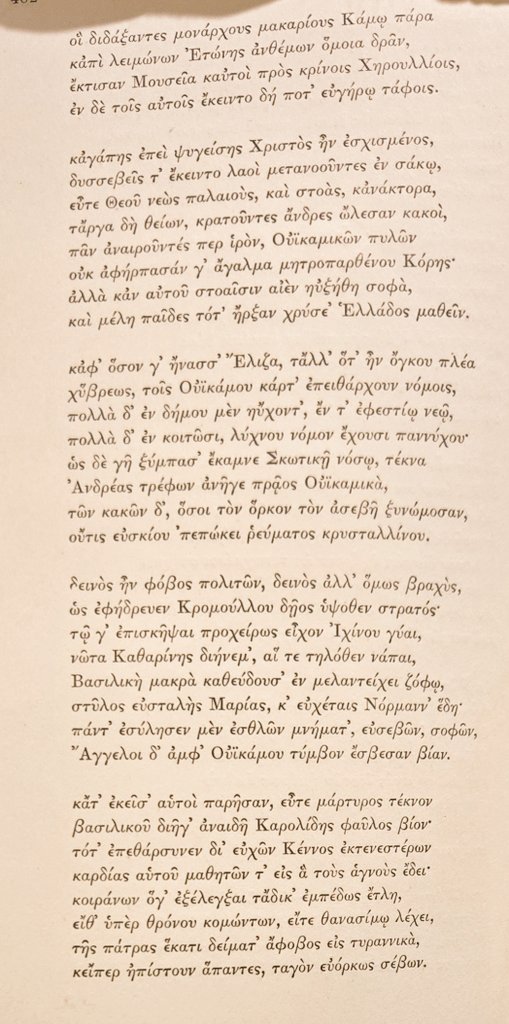 οἳ διδάξαντες μονάρχους μακαρίους Κάμῳ πάρα
κἀπὶ λειμώνων Ἐτώνης ἀνθέμων ὅμοια δρᾶν,
ἔκτισαν Μουσεῖα καὐτοὶ πρὸς κρίνοις Χηρουλλίοις,
ἐν δὲ τοῖς αὐτοῖς ἔκειντο δή ποτ’ εὐγήρῳ τάφοις.
κἀγάπης ἐπεὶ ψυγείσης Χριστὸς ἦν ἐσχισμένος,
δυσσεβεῖς τ’ ἔκειντο λαοὶ μετανοοῦντες ἐν σάκῳ,
εὖτε Θεοῦ νεὼς παλαιοὺς, καὶ στοὰς, κἀνάκτορα,
τἄργα δὴ θείων, κρατοῦντες ἄνδρες ὤλεσαν κακοὶ,
πᾶν ἀναιροῦντές περ ἱρὸν, Οὐϊκαμικῶν πυλῶν
οὐκ ἀφήρπασάν γ’ ἄγαλμα μητροπαρθένου Κόρης·
ἀλλὰ κἀν αὐτοῦ στοαῖσιν αἰὲν ηὐξήθη σοφὰ,
καὶ μέλη παῖδες τότ’ ἦρξαν χρύσε’ Ἑλλάδος μαθεῖν.
κἀφ’ ὅσον γ’ ἤνασσ’ Ἔλιζα, τἄλλ’ ὅτ’ ἦν ὄγκου πλέα
χὔβρεως, τοῖς Οὐϊκάμου κάρτ’ ἐπειθάρχουν νόμοις,
πολλὰ δ’ ἐν δήμου μὲν ηὔχοντ’, ἔν τ’ ἐφεστίῳ νεῷ,
πολλὰ δ’ ἐν κοιτῶσι, λύχνου νόμον ἔχουσι παννύχου·
ὡς δὲ γῆ ξύμπασ’ ἔκαμνε Σκωτικῇ νόσῳ, τέκνα
Ἀνδρέας τρέφων ἀνῆγε πρᾷος Οὐϊκαμικὰ,
τῶν κακῶν δ’, ὅσοι τὸν ὅρκον τὸν ἀσεβῆ ξυνώμοσαν,
οὔτις εὐσκίου ’πεπώκει ῥεύματος κρυσταλλίνου.
δεινὸς ἦν φόβος πολιτῶν, δεινὸς ἀλλ’ ὅμως βραχὺς,
ὡς ἐφήδρευεν Κρομούλλου δῇος ὑψοθεν στρατός·
τῷ γ’ ἐπισκῆψαι προχείρως εἶχον Ἰχίνου γύαι,
νῶτα Καθαρίνης διήνεμ’, αἵ τε τηλόθεν νάπαι,
Βασιλικὴ μακρὰ καθεύδουσ’ ἐν μελαντείχει ζόφῳ,
στῦλος εὐσταλὴς Μαρίας, κ’ εὐχέταις Νόρμανν’ ἕδη·
πάντ’ ἐσύλησεν μὲν ἐσθλῶν μνήματ’, εὐσεβῶν, σοφῶν,
Ἄγγελοι δ’ ἀμφ’ Οὐϊκάμου τύμβον ἔσβεσαν βίαν.
κᾆτ’ ἐκεῖσ’ αὐτοὶ παρῆσαν, εὖτε μάρτυρος τέκνον
βασιλικοῦ διῆγ’ ἀναιδῆ Καρολίδης φαῦλος βίον·
τότ’ ἐπεθάρσυνεν δι’ εὐχῶν Κέννος ἐκτενεστέρων
καρδίας αὑτοῦ μαθητῶν τ’ εἰς ἃ τοὺς ἁγνοὺς ἔδει·
κοιράνων ὅγ’ ἐξέλεγξαι τἄδικ’ ἐμπέδως ἔτλη,
εἴθ’ ὑπὲρ θρόνου κομώντων, εἴτε θανασίμῳ λέχει,
τῆς πάτρας ἕκατι δείματ’ ἄφοβος εἰς τυραννικὰ,
κεἴπερ ἠπίστουν ἅπαντες, ταγὸν εὐόρκως σέβων.